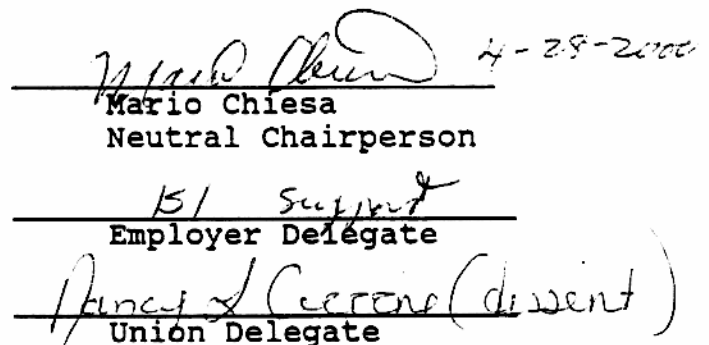 Mario Chiesa 4-28-2000
Mario Chiesa
Neutral Chairperson
/s/
Employer Delegate
Nancy (dissent)
Union Delegate